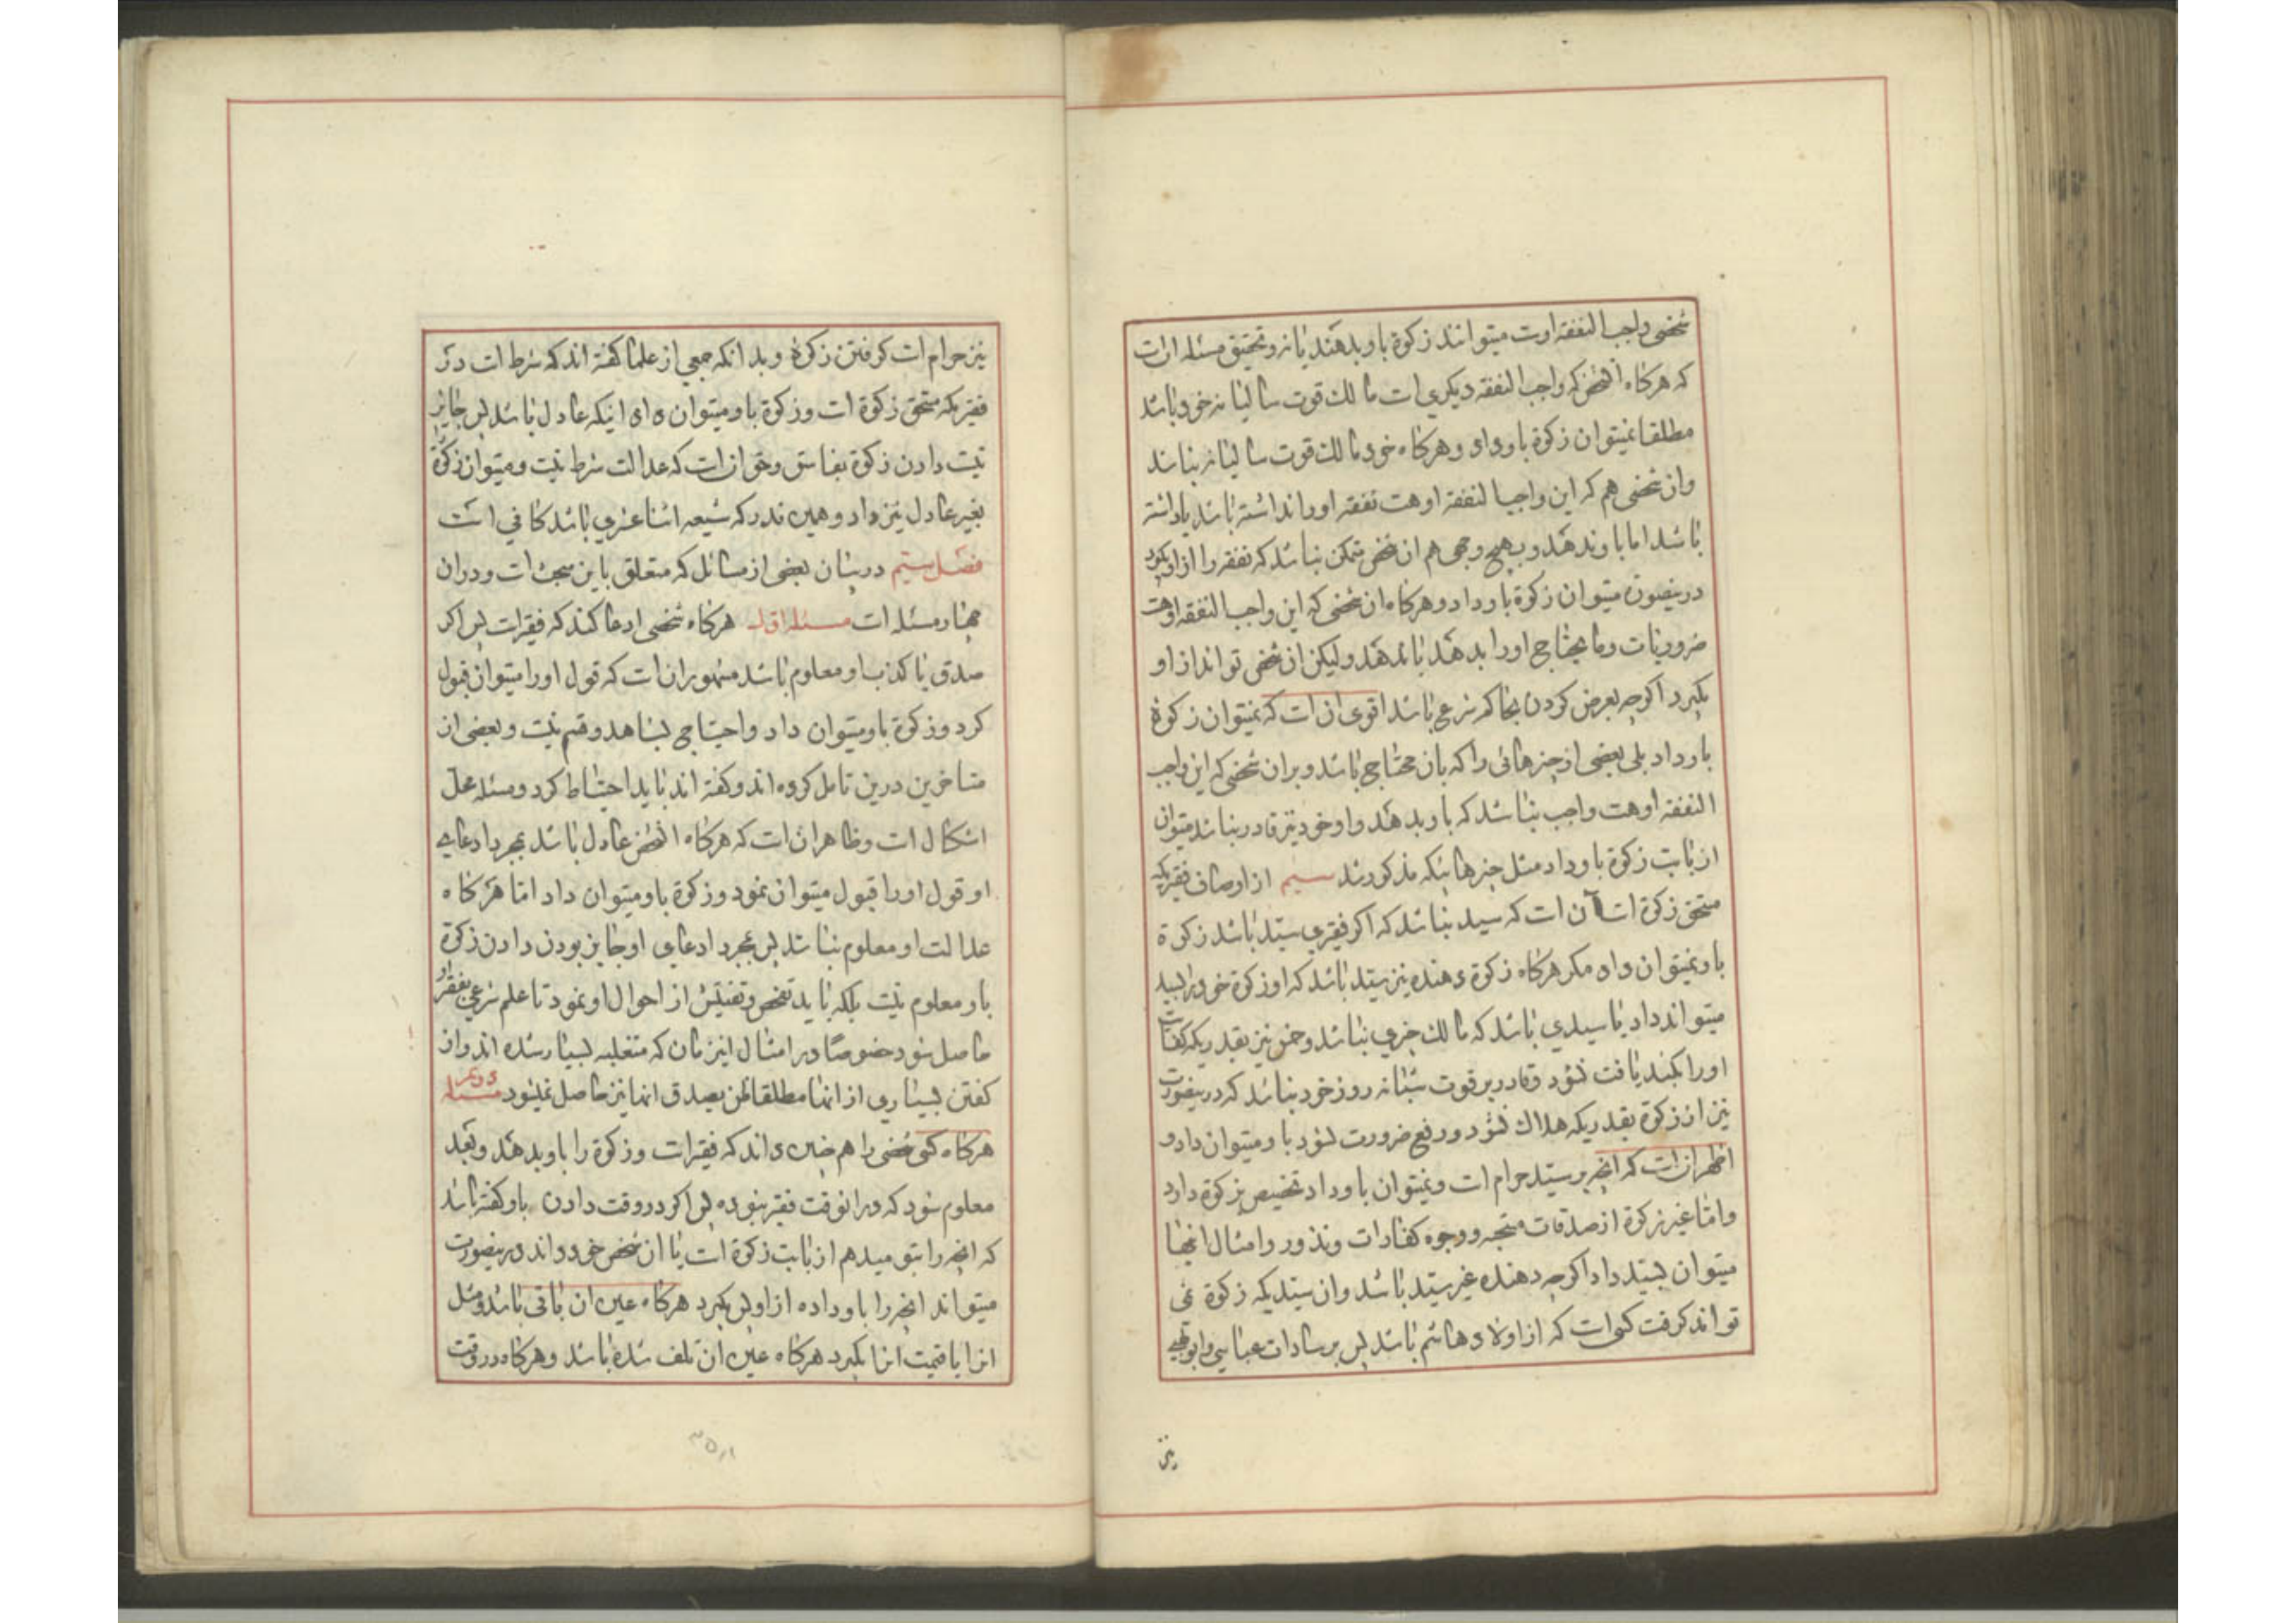 شخصی واجب النفقه اوست میتوانند زکوة باو بدهند یا نه و تحقیق مسئله ان است
که هرکاه انشخص که واجب النفقه دیکری است مالک قوت سالیانه خود باشد
مطلقا نمیتوان زکوة باو داد و هرکاه خود مالک قوت سالیانه نباشد
وان شخصی هم که این واجب النفقه او هست نفقه او را نداشته باشد یا داشته
باشد اما باو ندهد و بهیچ وجهی هم ان شخص متمکن نباشد که نفقه را از او بکیرد
درینصورت میتوان زکوة باو داد و هرکاه ان شخصی که این واجب النفقه او هست
ضروریات و ما یحتاج او را بدهد یا ندهد ولیکن ان شخص تواند از او
بکیرد اکرچه بعرض کردن بحاکم شرعی باشد اقوی ان است که نمیتوان زکوة
باو داد بلی بعضی از چیزهائی را که بان محتاج باشد و بران شخصی که این واجب
النفقه او هست واجب نباشد که باو بدهد و او خود نیز قادر نباشد میتوان
از بابت زکوة باو داد مثل چیزهائیکه مذکور شد سیم از اوصاف فقیریکه
مستحق زکوة است آن است که سید نباشد که اکر فقیری سید باشد زکوة
باو نمیتوان داد مکر هرکاه زکوة دهنده نیز سید باشد که او زکوة خود را بسید
میتواند داد یا سیدی باشد که مالک چیزی نباشد و خمس نیز بقدریکه کفایت
او را بکند یافت نشود و قادر بر قوت شبانه روز خود نباشد که درینصورت
نیز از زکوة بقدریکه هلاک نشود و رفع ضرورت بشود باو میتوان داد و
اظهر ان است که انچه بر سید حرام است و نمیتوان باو داد تخصیص بزکوة دارد
واما غیر زکوة از صدقات مستحبه و وجوه کفارات و نذور و امثال انها
میتوان بسید داد اکرچه دهنده غیر سید باشد وان سیدیکه زکوة نمی
تواند کرفت کسی است که از اولاد هاشم باشد پس بر سادات عباسی و ابولهبی
نیز
نیز حرام است کرفتن زکوة و بدانکه جمعی از علما کفته اند که شرط است در
فقیریکه مستحق زکوة است و زکوة باو میتوان داد اینکه عادل باشد پس جایز
نیست دادن زکوة بفاسق وحق ان است که عدالت شرط نیست و میتوان زکوة
بغیر عادل نیز داد و همین قدر که شیعه اثنا عشری باشد کافی است
فصل سیم در بیان بعضی از مسائل که متعلق باین مبحث است و دران
چهار مسئله است مسئله اول هرکاه شخصی ادعا کند که فقیر است پس اکر
صدق یا کذب او معلوم باشد مشهور ان است که قول او را میتوان قبول
کرد و زکوة باو میتوان داد و احتیاجی بشاهد و قسم نیست و بعضی از
متاخرین درین تامل کرده اند و کفته اند باید احتیاط کرد و مسئله محل
اشکال است و ظاهر ان است که هرکاه انشخص عادل باشد بمجرد ادعای
او قول او را قبول میتوان نمود و زکوة باو میتوان داد اما هرکاه
عدالت او معلوم نباشد پس بمجرد ادعای او جایز بودن دادن زکوة
باو معلوم نیست بلکه باید تفحص و تفتیش از احوال او نمود تا علم شرعی بفقر او
حاصل شود خصوصا در امثال اینزمان که متغلبه بسیار شده اند و از
کفتن بسیاری از انها مطلقا ظن بصدق انها نیز حاصل نمیشود مسئله دویم
هرکاه کسی شخصی را هم چنین داند که فقیر است و زکوة را باو بدهد و بعد
معلوم شود که در انوقت فقیر نبوده پس اکر در وقت دادن باو کفته باشد
که انچه را بتو میدهم از بابت زکوة است یا ان شخص خود داند درینصورت
میتواند انچه را باو داده از او پس بکیرد هرکاه عین ان باقی باشد و مثل
انرا یا قیمت انرا بکیرد هرکاه عین ان تلف شده باشد و هرکاه در وقت